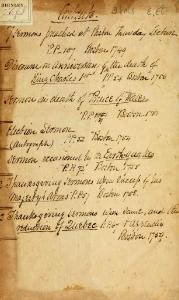 Contents.
7 Sermons preached at Boston Thursday Lecture
P.P. 187 Boston 1744
Discourse on Anniversary of the death of
King Charles 1st P. 54 Boston 1750
Sermon on death of Prince of Wales
Boston 1751
Election Sermon
(Autograph) P. 52 Boston 1754
Sermon occasioned by the Earthquakes
P.P. 72 Boston 1755
Thanksgiving Sermons upon success of his
Majesty's Arms P.P. 67 Boston 1758.
2 Thanksgiving Sermons upon same, and the
reduction of Quebec P.P.
Boston 1759.